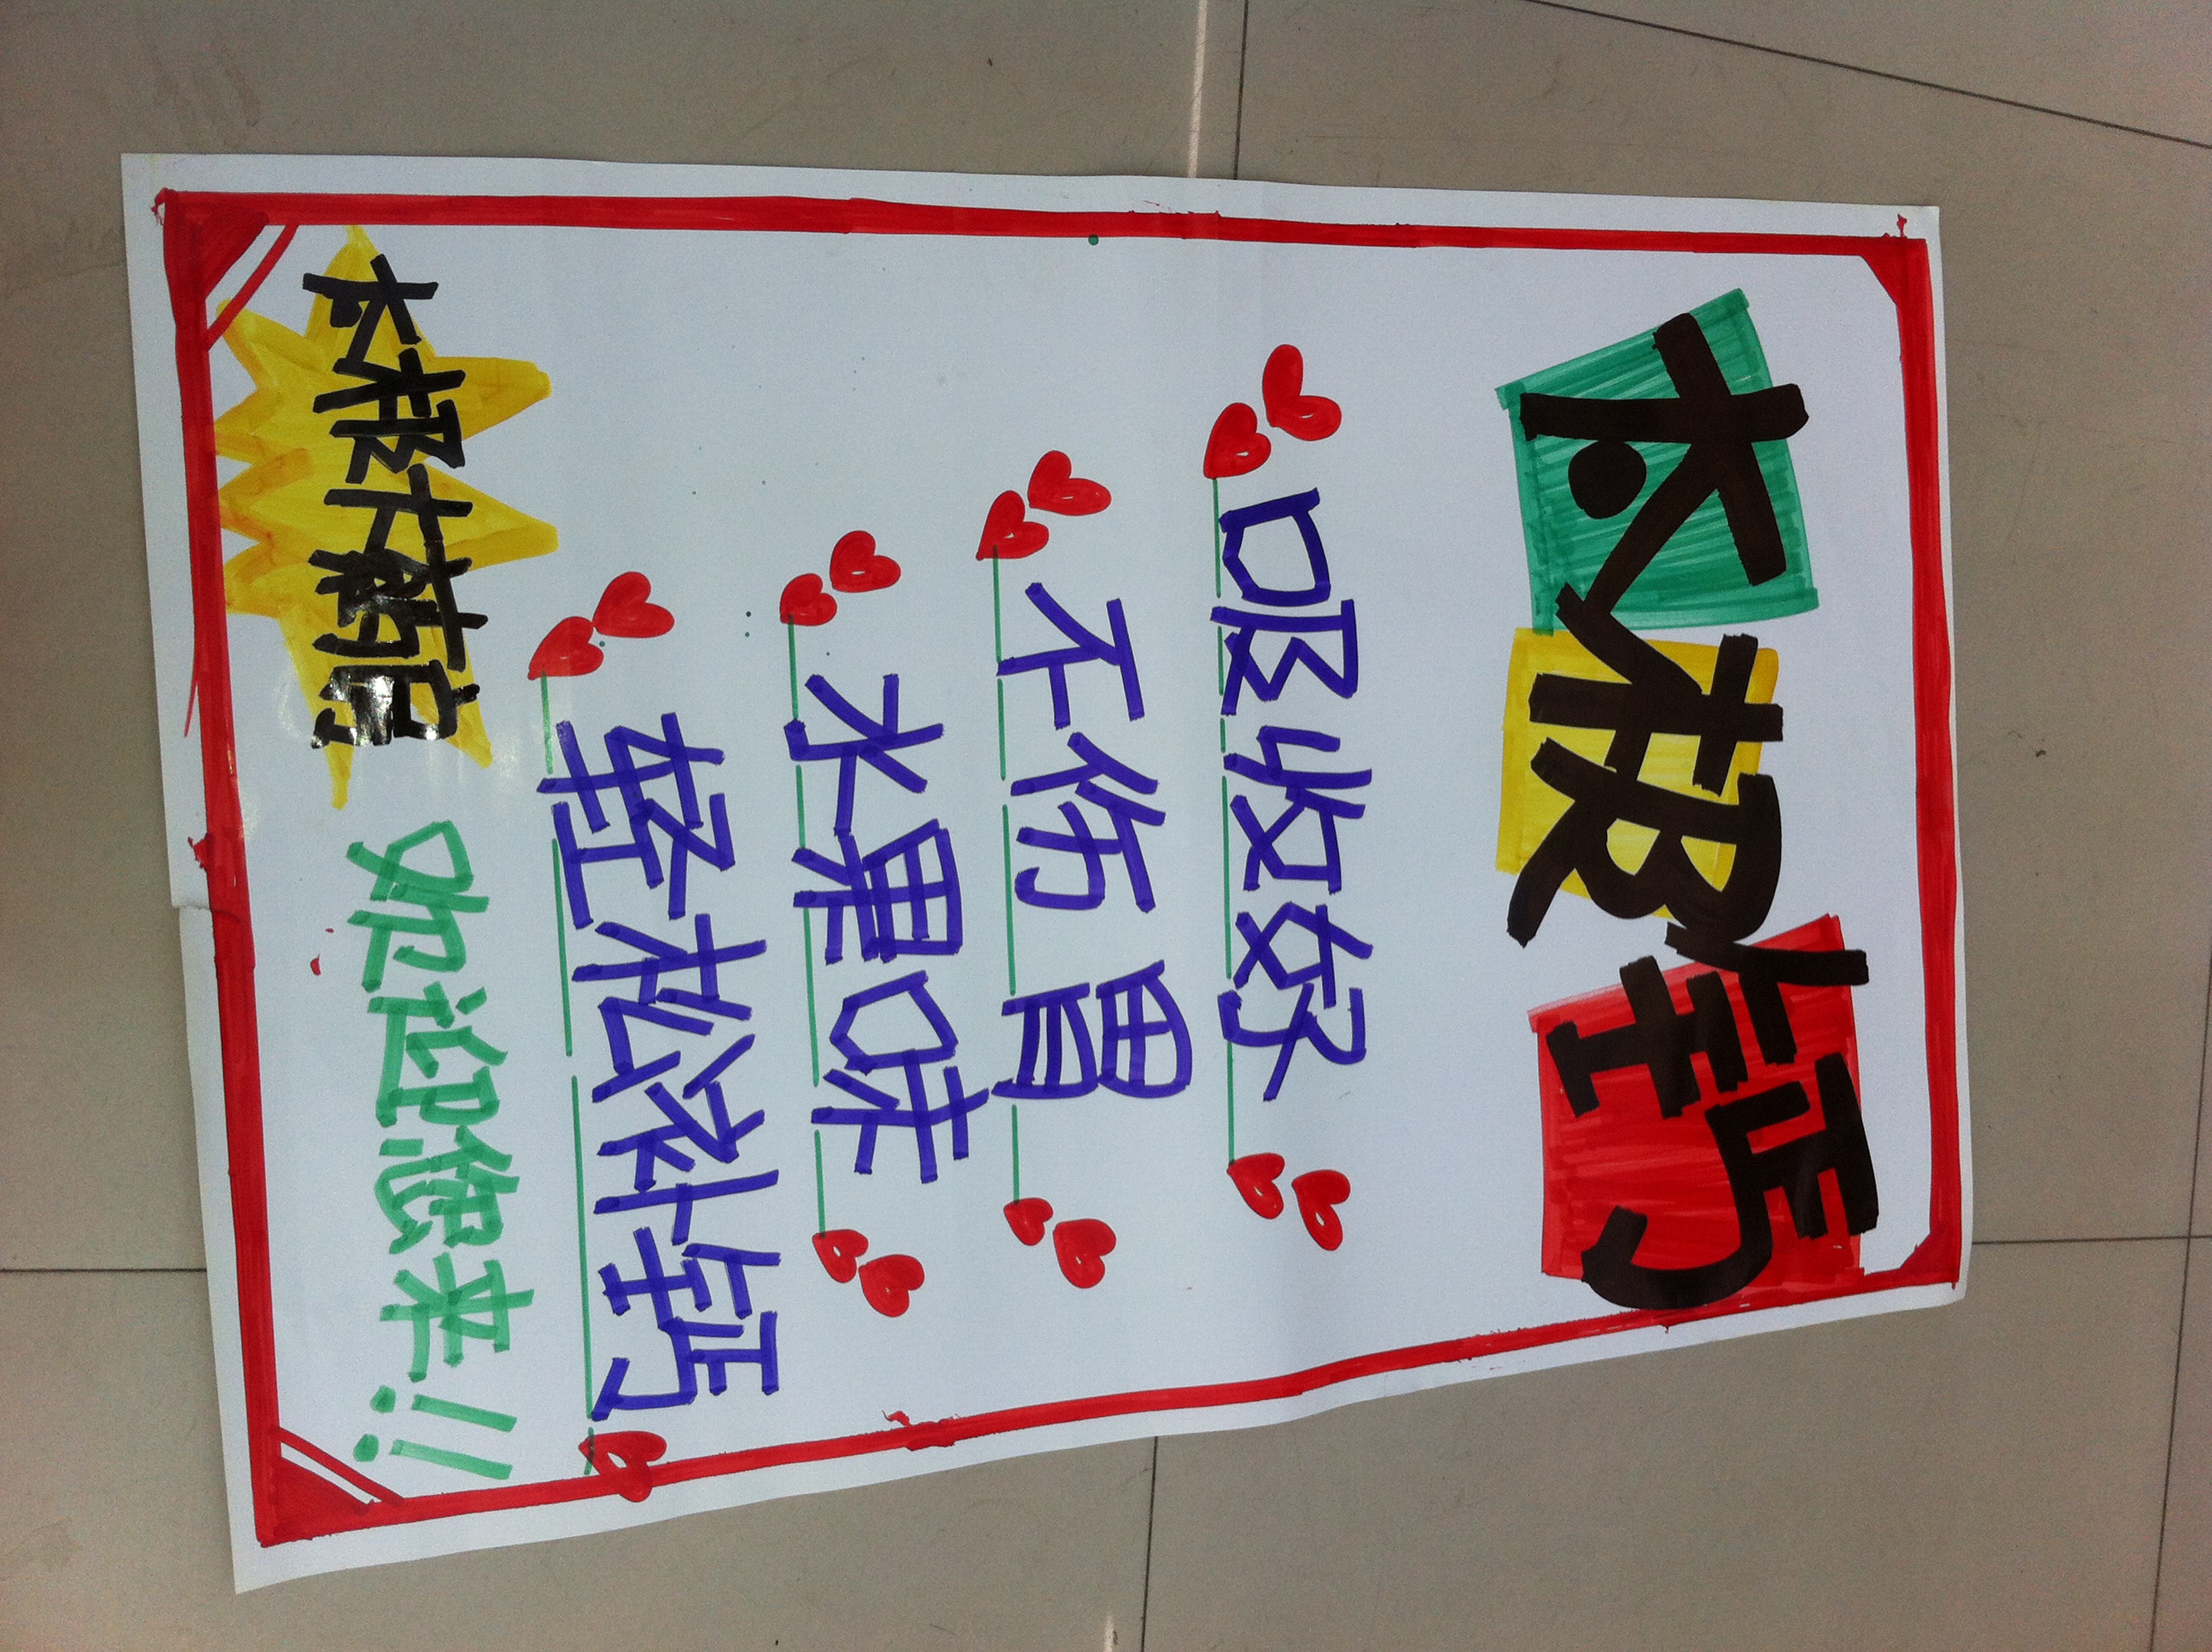 太极钙
吸收好
不伤胃
水果味
轻松补钙
太极大药店
欢迎您来!!